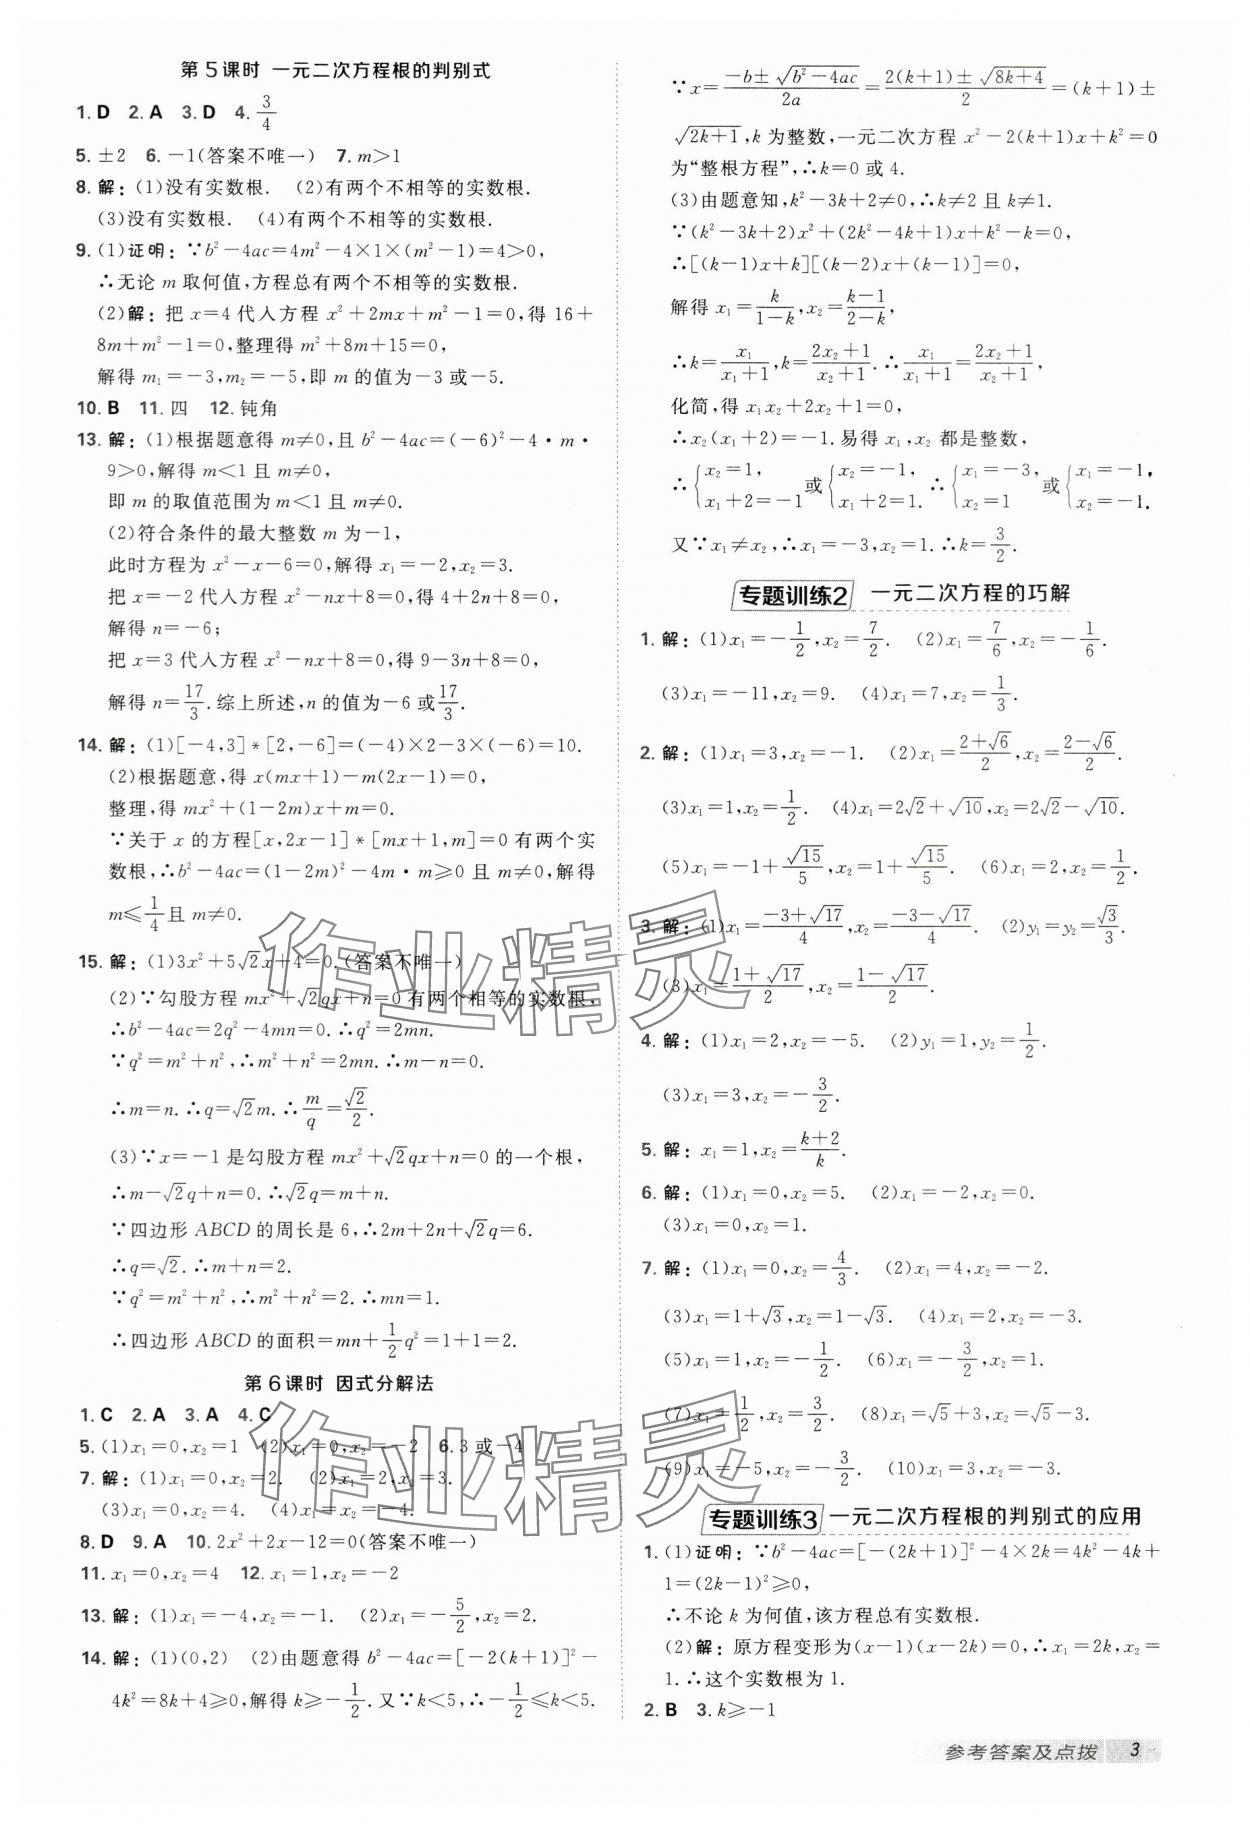 第5课时 一元二次方程根的判别式
1. D 2. A 3. D 4. 3/4
5. ±2 6. －1(答案不唯一) 7. m＞1
8. 解：(1)没有实数根. (2)有两个不相等的实数根.
(3)没有实数根. (4)有两个不相等的实数根.
9. (1)证明：∵b²－4ac＝4m²－4×1×(m²－1)＝4＞0，
∴无论 m 取何值，方程总有两个不相等的实数根.
(2)解：把 x＝4 代入方程 x²＋2mx＋m²－1＝0，得 16＋
8m＋m²－1＝0，整理得 m²＋8m＋15＝0，
解得 m₁＝－3，m₂＝－5，即 m 的值为－3 或－5.
10. B 11. 四 12. 钝角
13. 解：(1)根据题意得 m≠0，且 b²－4ac＝(－6)²－4·m·
9＞0，解得 m＜1 且 m≠0，
即 m 的取值范围为 m＜1 且 m≠0.
(2)符合条件的最大整数 m 为－1，
此时方程为 x²－x－6＝0，解得 x₁＝－2，x₂＝3.
把 x＝－2 代入方程 x²－nx＋8＝0，得 4＋2n＋8＝0，
解得 n＝－6；
把 x＝3 代入方程 x²－nx＋8＝0，得 9－3n＋8＝0，
解得 n＝17/3. 综上所述，n 的值为－6 或 17/3.
14. 解：(1)[－4，3]*[2，－6]＝(－4)×2－3×(－6)＝10.
(2)根据题意，得 x(mx＋1)－m(2x－1)＝0，
整理，得 mx²＋(1－2m)x＋m＝0.
∵关于 x 的方程[x，2x－1]*[mx＋1，m]＝0 有两个实
数根，∴b²－4ac＝(1－2m)²－4m·m≥0 且 m≠0，解得
m≤1/4 且 m≠0.
15. 解：(1)3x²＋5√2x＋4＝0.(答案不唯一)
(2)∵勾股方程 mx²＋√2qx＋n＝0 有两个相等的实数根，
∴b²－4ac＝2q²－4mn＝0. ∴q²＝2mn.
∵q²＝m²＋n²，∴m²＋n²＝2mn. ∴m－n＝0.
∴m＝n. ∴q＝√2m. ∴m/q＝√2/2.
(3)∵x＝－1 是勾股方程 mx²＋√2qx＋n＝0 的一个根，
∴m－√2q＋n＝0. ∴√2q＝m＋n.
∵四边形 ABCD 的周长是 6，∴2m＋2n＋√2q＝6.
∴q＝√2. ∴m＋n＝2.
∵q²＝m²＋n²，∴m²＋n²＝2. ∴mn＝1.
∴四边形 ABCD 的面积＝mn＋1/2q²＝1＋1＝2.
第6课时 因式分解法
1. C 2. A 3. A 4. C
5. (1)x₁＝0，x₂＝1 (2)x₁＝0，x₂＝－2 6. 3 或－4
7. 解：(1)x₁＝0，x₂＝2. (2)x₁＝2，x₂＝3.
(3)x₁＝0，x₂＝4. (4)x₁＝x₂＝－4.
8. D 9. A 10. 2x²＋2x－12＝0(答案不唯一)
11. x₁＝0，x₂＝4 12. x₁＝1，x₂＝－2
13. 解：(1)x₁＝－4，x₂＝－1. (2)x₁＝－5/2，x₂＝2.
14. 解：(1)(0，2) (2)由题意得 b²－4ac＝[－2(k＋1)]²－
4k²＝8k＋4≥0，解得 k≥－1/2. 又∵k＜5，∴－1/2≤k＜5.
∵x＝(－b±√(b²－4ac))/2a＝(2(k＋1)±√(8k＋4))/2＝(k＋1)±
√(2k＋1)，k 为整数，一元二次方程 x²－2(k＋1)x＋k²＝0
为“整根方程”，∴k＝0 或 4.
(3)由题意知，k²－3k＋2≠0，∴k≠2 且 k≠1.
∵(k²－3k＋2)x²＋(2k²－4k＋1)x＋k²－k＝0，
∴[(k－1)x＋k][(k－2)x＋(k－1)]＝0，
解得 x₁＝k/(1－k)，x₂＝(k－1)/(2－k)，
∴k＝x₁/(x₁＋1)，k＝(2x₂＋1)/(x₂＋1). ∴x₁/(x₁＋1)＝(2x₂＋1)/(x₂＋1)，
化简，得 x₁x₂＋2x₂＋1＝0，
∴x₂(x₁＋2)＝－1. 易得 x₁，x₂ 都是整数，
∴{x₂＝1，x₁＋2＝－1 或{x₂＝－1，x₁＋2＝1. ∴{x₁＝－3，x₂＝1 或{x₁＝－1，x₂＝－1.
又∵x₁≠x₂，∴x₁＝－3，x₂＝1. ∴k＝3/2.
专题训练2 一元二次方程的巧解
1. 解：(1)x₁＝－1/2，x₂＝7/2. (2)x₁＝7/6，x₂＝－1/6.
(3)x₁＝－11，x₂＝9. (4)x₁＝7，x₂＝1/3.
2. 解：(1)x₁＝3，x₂＝－1. (2)x₁＝(2＋√6)/2，x₂＝(2－√6)/2.
(3)x₁＝1，x₂＝1/2. (4)x₁＝2√2＋√10，x₂＝2√2－√10.
(5)x₁＝－1＋√15/5，x₂＝1＋√15/5. (6)x₁＝2，x₂＝1/2.
3. 解：(1)x₁＝(－3＋√17)/4，x₂＝(－3－√17)/4. (2)y₁＝y₂＝√3/3.
(3)x₁＝(1＋√17)/2，x₂＝(1－√17)/2.
4. 解：(1)x₁＝2，x₂＝－5. (2)y₁＝1，y₂＝1/2.
(3)x₁＝3，x₂＝－3/2.
5. 解：x₁＝1，x₂＝(k＋2)/k.
6. 解：(1)x₁＝0，x₂＝5. (2)x₁＝－2，x₂＝0.
(3)x₁＝0，x₂＝1.
7. 解：(1)x₁＝0，x₂＝4/3. (2)x₁＝4，x₂＝－2.
(3)x₁＝1＋√3，x₂＝1－√3. (4)x₁＝2，x₂＝－3.
(5)x₁＝1，x₂＝－1/2. (6)x₁＝－3/2，x₂＝1.
(7)x₁＝1/2，x₂＝3/2. (8)x₁＝√5＋3，x₂＝√5－3.
(9)x₁＝－5，x₂＝－3/2. (10)x₁＝3，x₂＝－3.
专题训练3 一元二次方程根的判别式的应用
1. (1)证明：∵b²－4ac＝[－(2k＋1)]²－4×2k＝4k²－4k＋
1＝(2k－1)²≥0，
∴不论 k 为何值，该方程总有实数根.
(2)解：原方程变形为(x－1)(x－2k)＝0，∴x₁＝2k，x₂＝
1. ∴这个实数根为 1.
2. B 3. k≥－1
参考答案及点拨 3
作业精灵
作业精灵